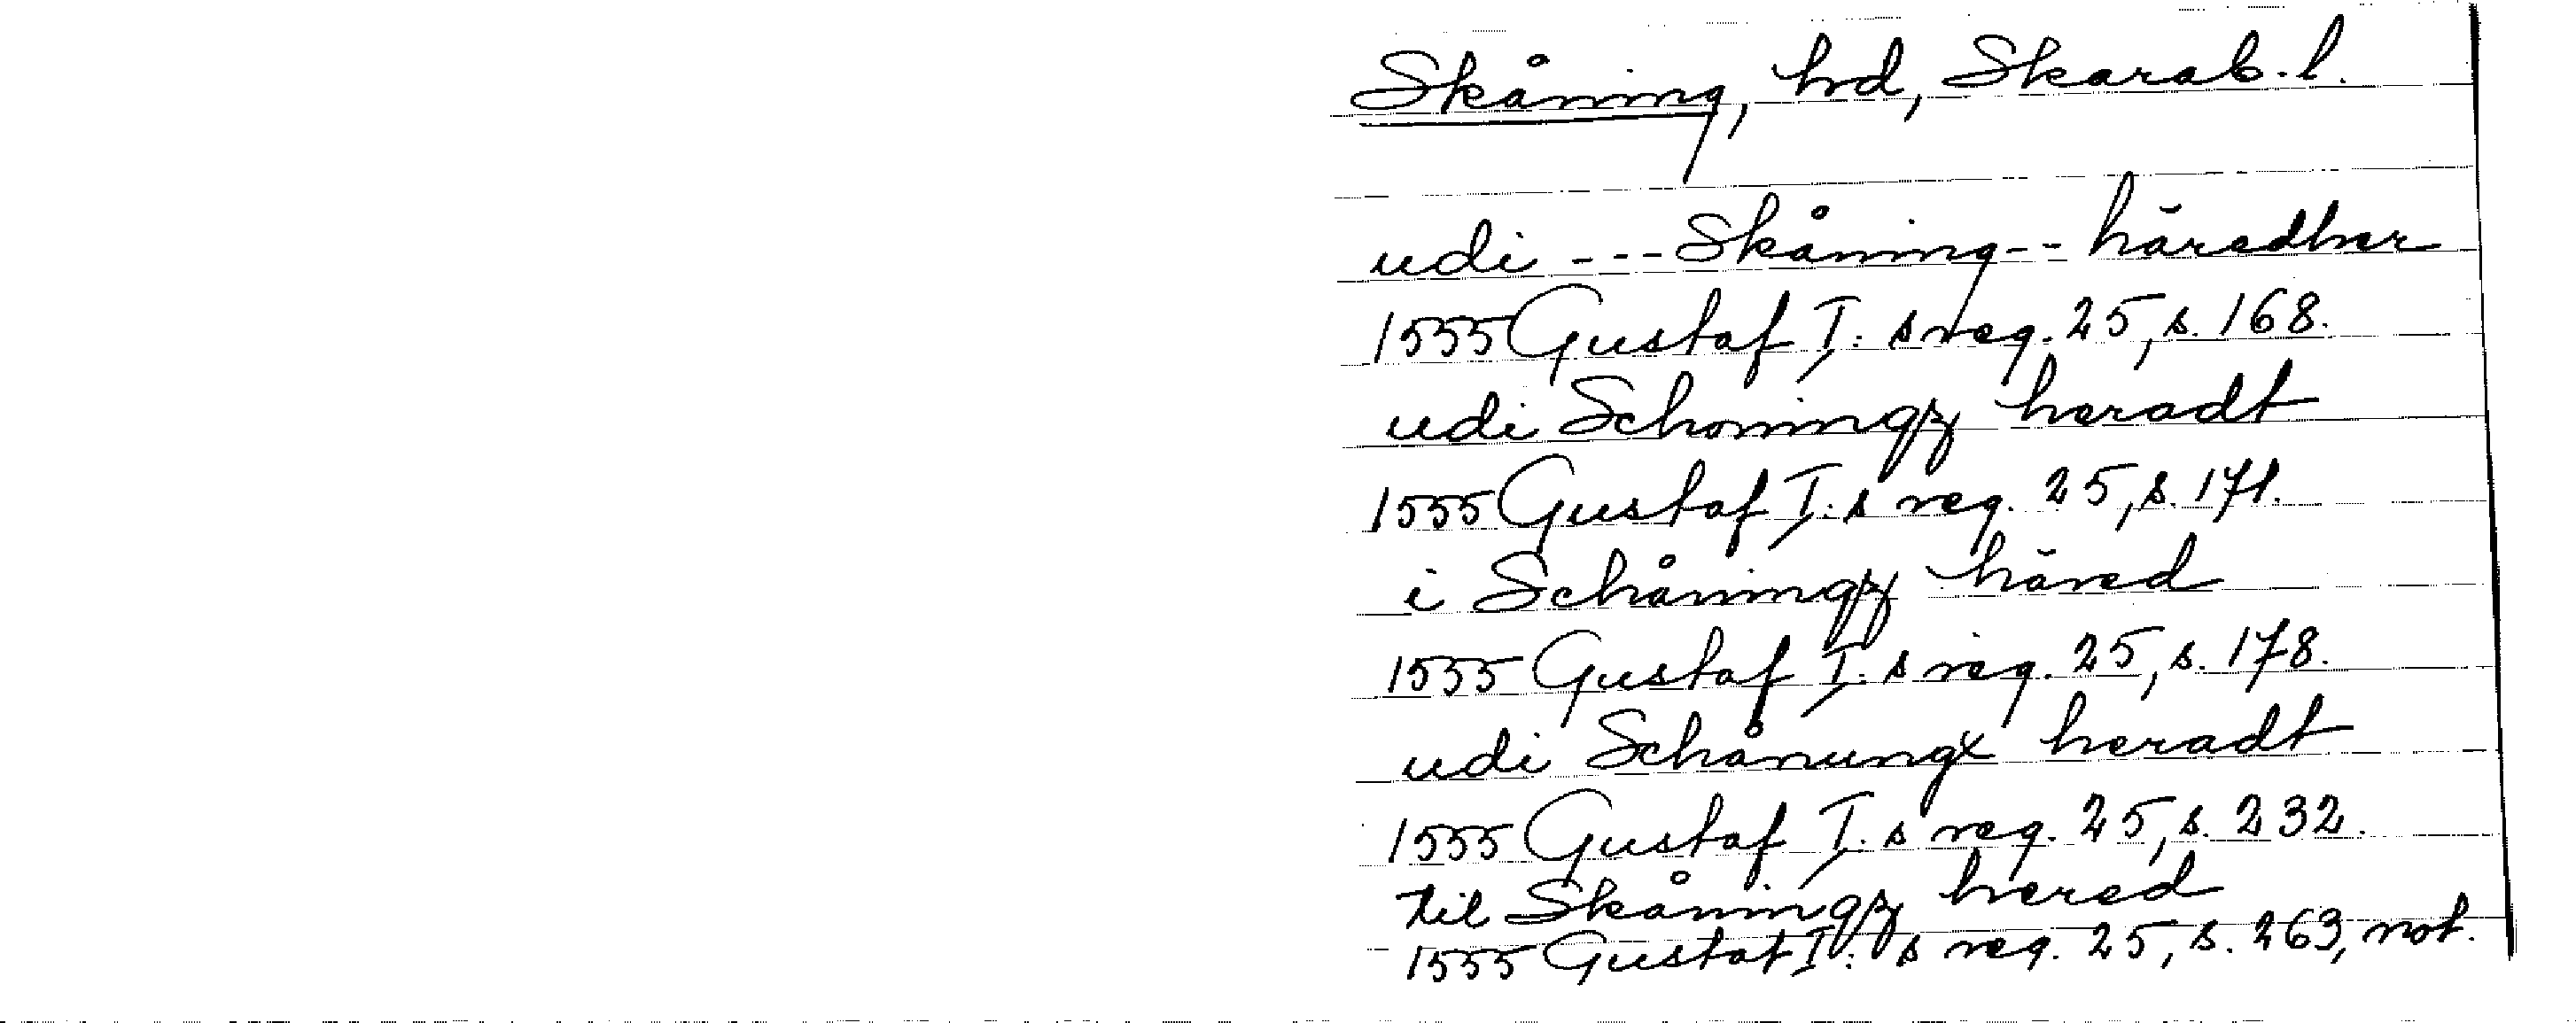 Skåning, hd, Skarab. l.
udi --- Skåning -- häredher
1555 Gustaf I: s reg. 25, s. 168.
udi Schoningz heradt
1555 Gustaf I: s reg. 25, s. 171.
i Schåningz häred
1555 Gustaf I: s reg. 25, s. 178.
udi Schånungx heradt
1555 Gustaf I: s reg. 25, s. 232.
til Skåningz hered
1555 Gustaf I: s reg. 25, s. 263, not.